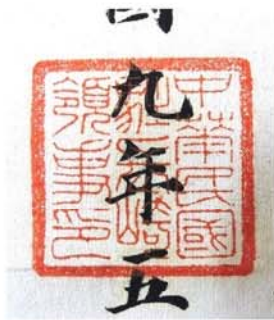 國九年五
中華民國
駐長崎
領事印